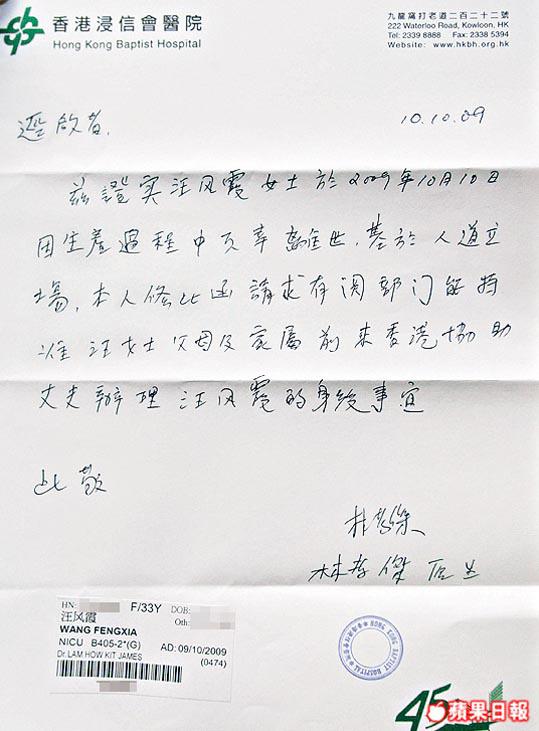 香港浸信會醫院
Hong Kong Baptist Hospital
九龍窩打老道二百二十二號
222 Waterloo Road, Kowloon, HK
Tel: 2339 8888 Fax: 2338 5394
Website: www.hkbh.org.hk
逕啟者,
10.10.09
茲證实汪风霞女士於2009年10月10日
因生產過程中不幸離世,基於人道立
場,本人修此函請求有関部门能特
准汪女士父母及家屬前来香港協助
丈夫辦理汪风霞的身後事宜
此敬
林孝傑医生
HN: F/33Y DOB:
Oth:
汪风霞
WANG FENGXIA
NICU B405-2*(G) AD: 09/10/2009
Dr. LAM HOW KIT JAMES (0474)
45
蘋果日報